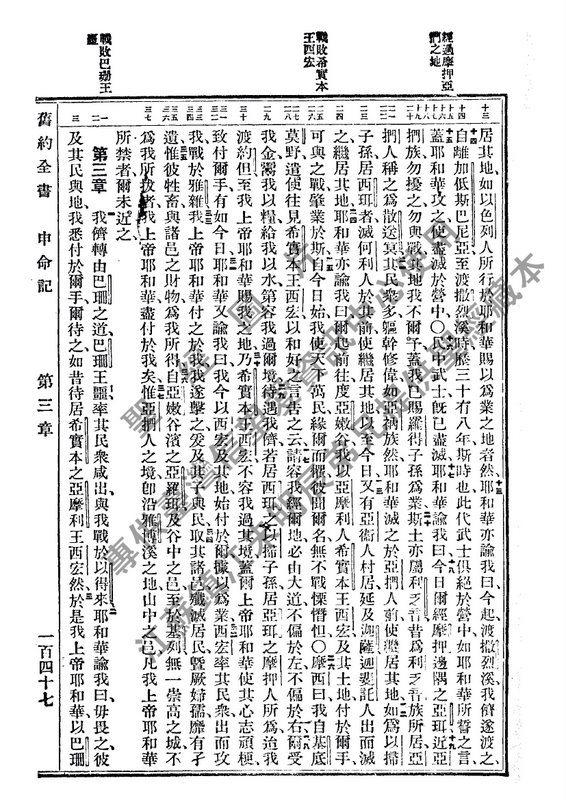 經過摩押亞
捫之地
戰敗希實本
王西宏
戰敗巴珊王
噩
居其地如以色列人所行於耶和華賜以爲業之地者然耶和華亦諭我曰今起渡撒烈溪我儕遂渡之
自離加低斯巴尼亞至渡撒烈溪時歷三十有八年斯時也此代武士俱絕於營中如耶和華所誓之言
蓋耶和華攻之使盡滅於營中〇民中武士旣已盡滅耶和華諭我曰今日爾經摩押邊隅之亞珥近亞
捫族勿擾之勿與戰其地我不予爾蓋我已賜羅得子孫爲業斯土亦屬利乏音昔爲利乏音族所居亞
捫人稱之爲散送冥其民衆多軀幹修偉如亞衲族然耶和華滅之於亞捫人前使繼居其地如爲以掃
子孫居西珥者滅何利人於其前使繼居其地以至今日又有亞衛人村居延及迦薩迦斐託人出而滅
之繼居其地耶和華亦諭我曰爾起前往度亞嫩谷我以亞摩利人希實本王西宏及其土地付於爾手
可與之戰肇業於斯自今日始我使天下萬民緣爾而懼彼聞爾名無不戰慄憯怛〇摩西曰我自基底
莫野遣使往見希實本王西宏以和好之言告之云請容我經爾地必由大道不偏於左不偏於右爾受
我金鬻我以糧給我以水第容我過爾境待遇我儕若居西珥之以掃子孫居亞珥之摩押人所爲迨我
渡約但至我上帝耶和華賜我之地乃希實本王西宏不容我過其境蓋爾上帝耶和華使其心志頑梗
致付爾手有如今日耶和華又諭我曰我今以西宏及其地始付於爾據以爲業西宏率其民衆出而攻
我戰於雅雜我上帝耶和華付之於我我遂擊之爰及其子與民取其諸邑殲滅居民曁厥婦孺靡有孑
遺惟彼牲畜與諸邑之財物爲我所得自亞嫩谷濱之亞羅珥及谷中之邑至於基列無一崇高之城不
爲我所拔者我上帝耶和華盡付於我矣惟亞捫人之境卽沿雅博溪之地山中之邑凡我上帝耶和華
所禁者爾未近之
第三章 我儕轉由巴珊之道巴珊王噩率其民衆咸出與我戰於以得來耶和華諭我曰毋畏之彼
及其民與地我悉付於爾手爾待之如昔待居希實本之亞摩利王西宏然於是我上帝耶和華以巴珊
舊約全書 申命記 第三章 一百四十七